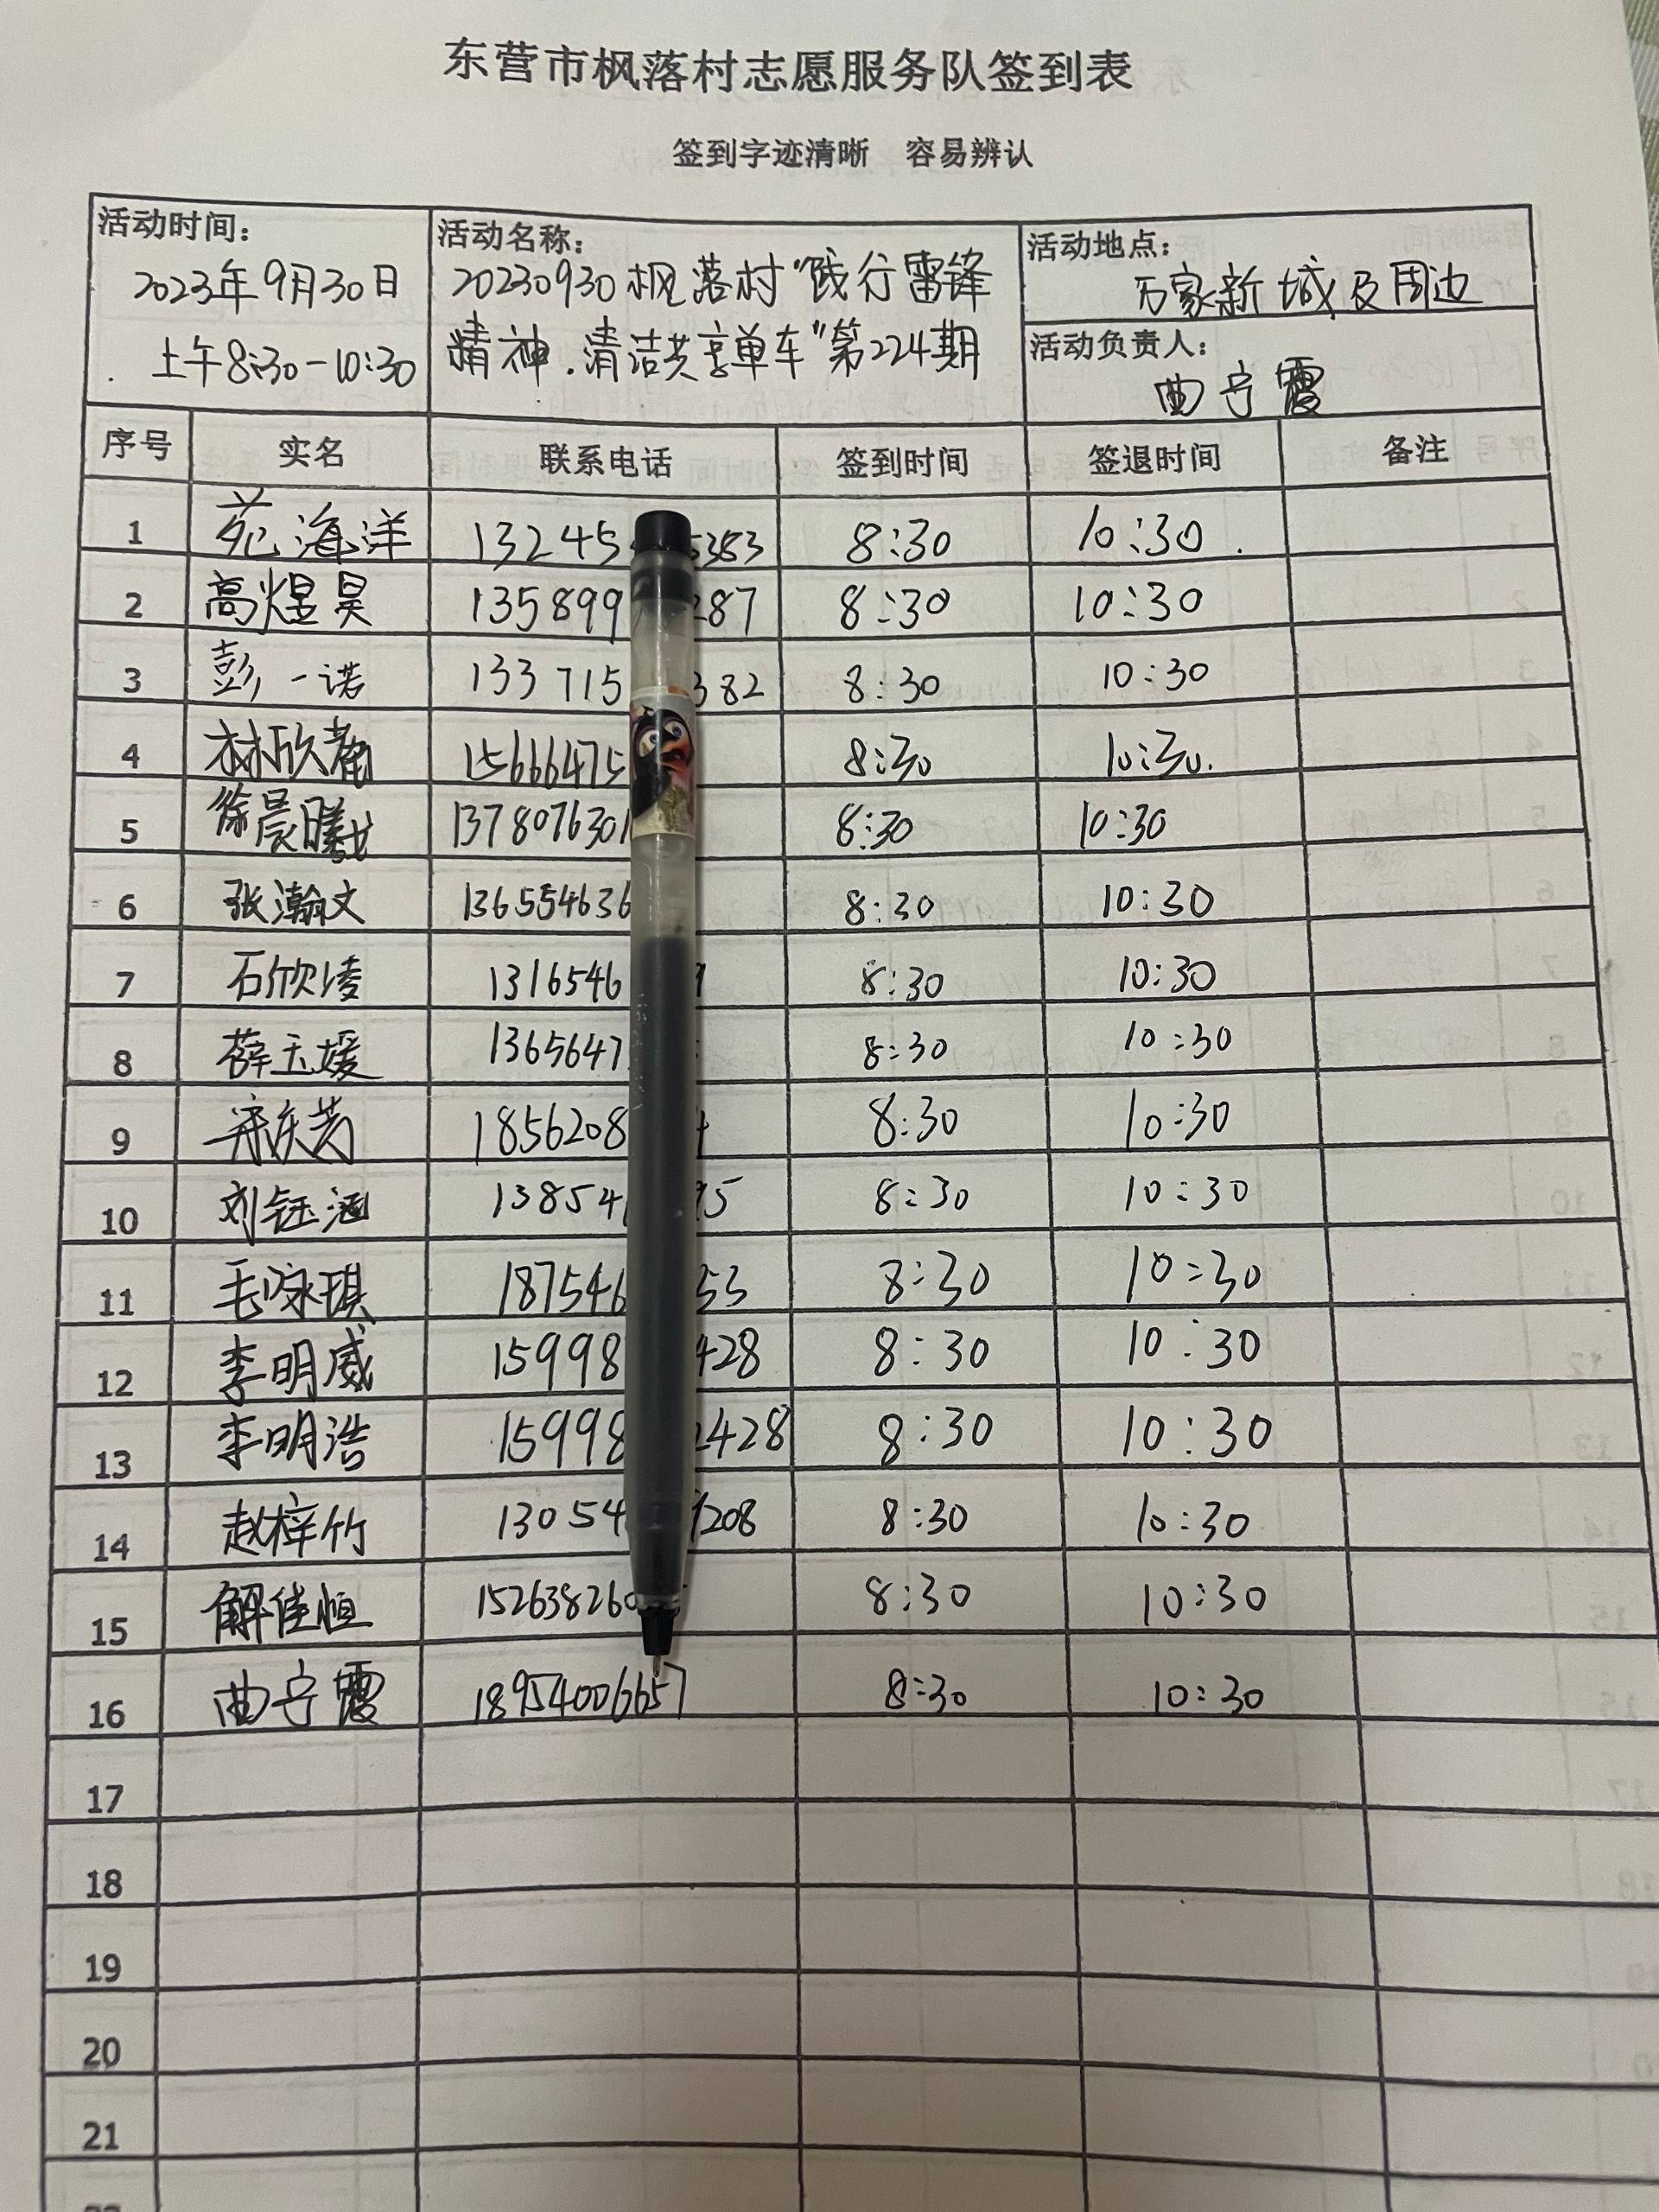 东营市枫落村志愿服务队签到表
签到字迹清晰 容易辨认
活动时间：
2023年9月30日
上午8:30-10:30
活动名称：
20230930枫落村"践行雷锋
精神.清洁共享单车"第224期
活动地点：
万家新城及周边
活动负责人：
曲宁霞
序号 实名 联系电话 签到时间 签退时间 备注
1 苑海洋 13245 5353 8:30 10:30
2 高煜昊 135899 287 8:30 10:30
3 彭一诺 133715 382 8:30 10:30
4 林欣静 15666475 8:30 10:30
5 徐晨曦 1378076301 8:30 10:30
6 张瀚文 136554636 8:30 10:30
7 石欣凌 1316546 8:30 10:30
8 薛玉媛 1365647 8:30 10:30
9 宋庆芳 1856208 8:30 10:30
10 刘钰涵 138541 95 8:30 10:30
11 毛咏琪 187546 53 8:30 10:30
12 李明威 15998 428 8:30 10:30
13 李明浩 15998 2428 8:30 10:30
14 赵梓竹 13054 9208 8:30 10:30
15 解佳恒 152638260 8:30 10:30
16 曲宁霞 18954006657 8:30 10:30
17
18
19
20
21